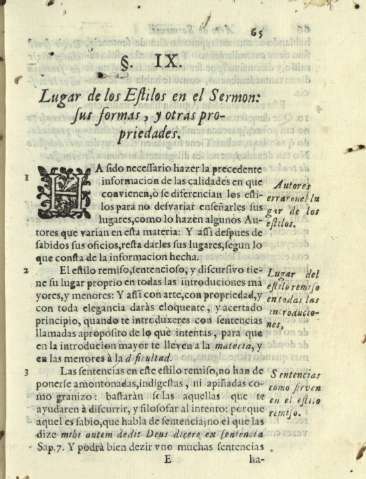 65
§. IX.
Lugar de los Estilos en el Sermon:
sus formas, y otras pro-
priedades.
1
HA sido necessario hazer la precedente
informacion de las calidades en que
convienen, ò se diferencian los esti-
los para no desvariar enseñarles sus
lugares, como lo hazen algunos Au-
tores que varian en esta materia: Y assi despues de
sabidos sus oficios, resta darles sus lugares, segun lo
que consta de la informacion hecha.
Autores
erraren el lu
gar de los
estilos.
2
El estilo remiso, sentencioso, y discursivo tie-
ne su lugar proprio en todas las introduciones ma
yores, y menores: Y assi con arte, con propriedad, y
con toda elegancia daràs eloquente, y acertado
principio, quando te introduxeres con sentencias
llamadas aproposito de lo que intentas, para que
en la introducion mayor te lleven a la materia, y
en las menores à la dificultad.
Lugar del
estilo remiso
en todas las
introducio-
nes.
3
Las sentencias en este estilo remiso, no han de
ponerse amontonadas, indigestas, ni apiñadas co-
mo granizo: bastaràn solas aquellas que te
ayudaren à discurrir, y filosofar al intento: porque
aquel es sabio, que habla de sentencia; no el que las
dize mihi autem dedit Deus dicere ex sententia
Sap. 7. Y podrà bien dezir uno muchas sentencias
Sentencias
como sirven
en el estilo
remiso.
E
ha-